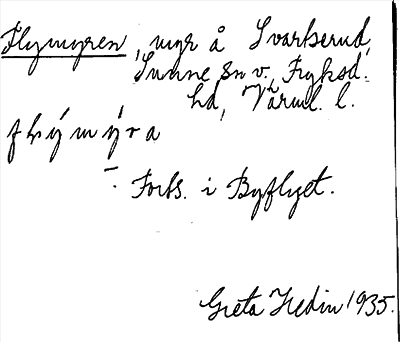 Flymyren, myr å Svartserud,
Sunne sn v., Fryksd.
hd, Värml. l.
Forts. i Byflyet.
Greta Hedin 1935.